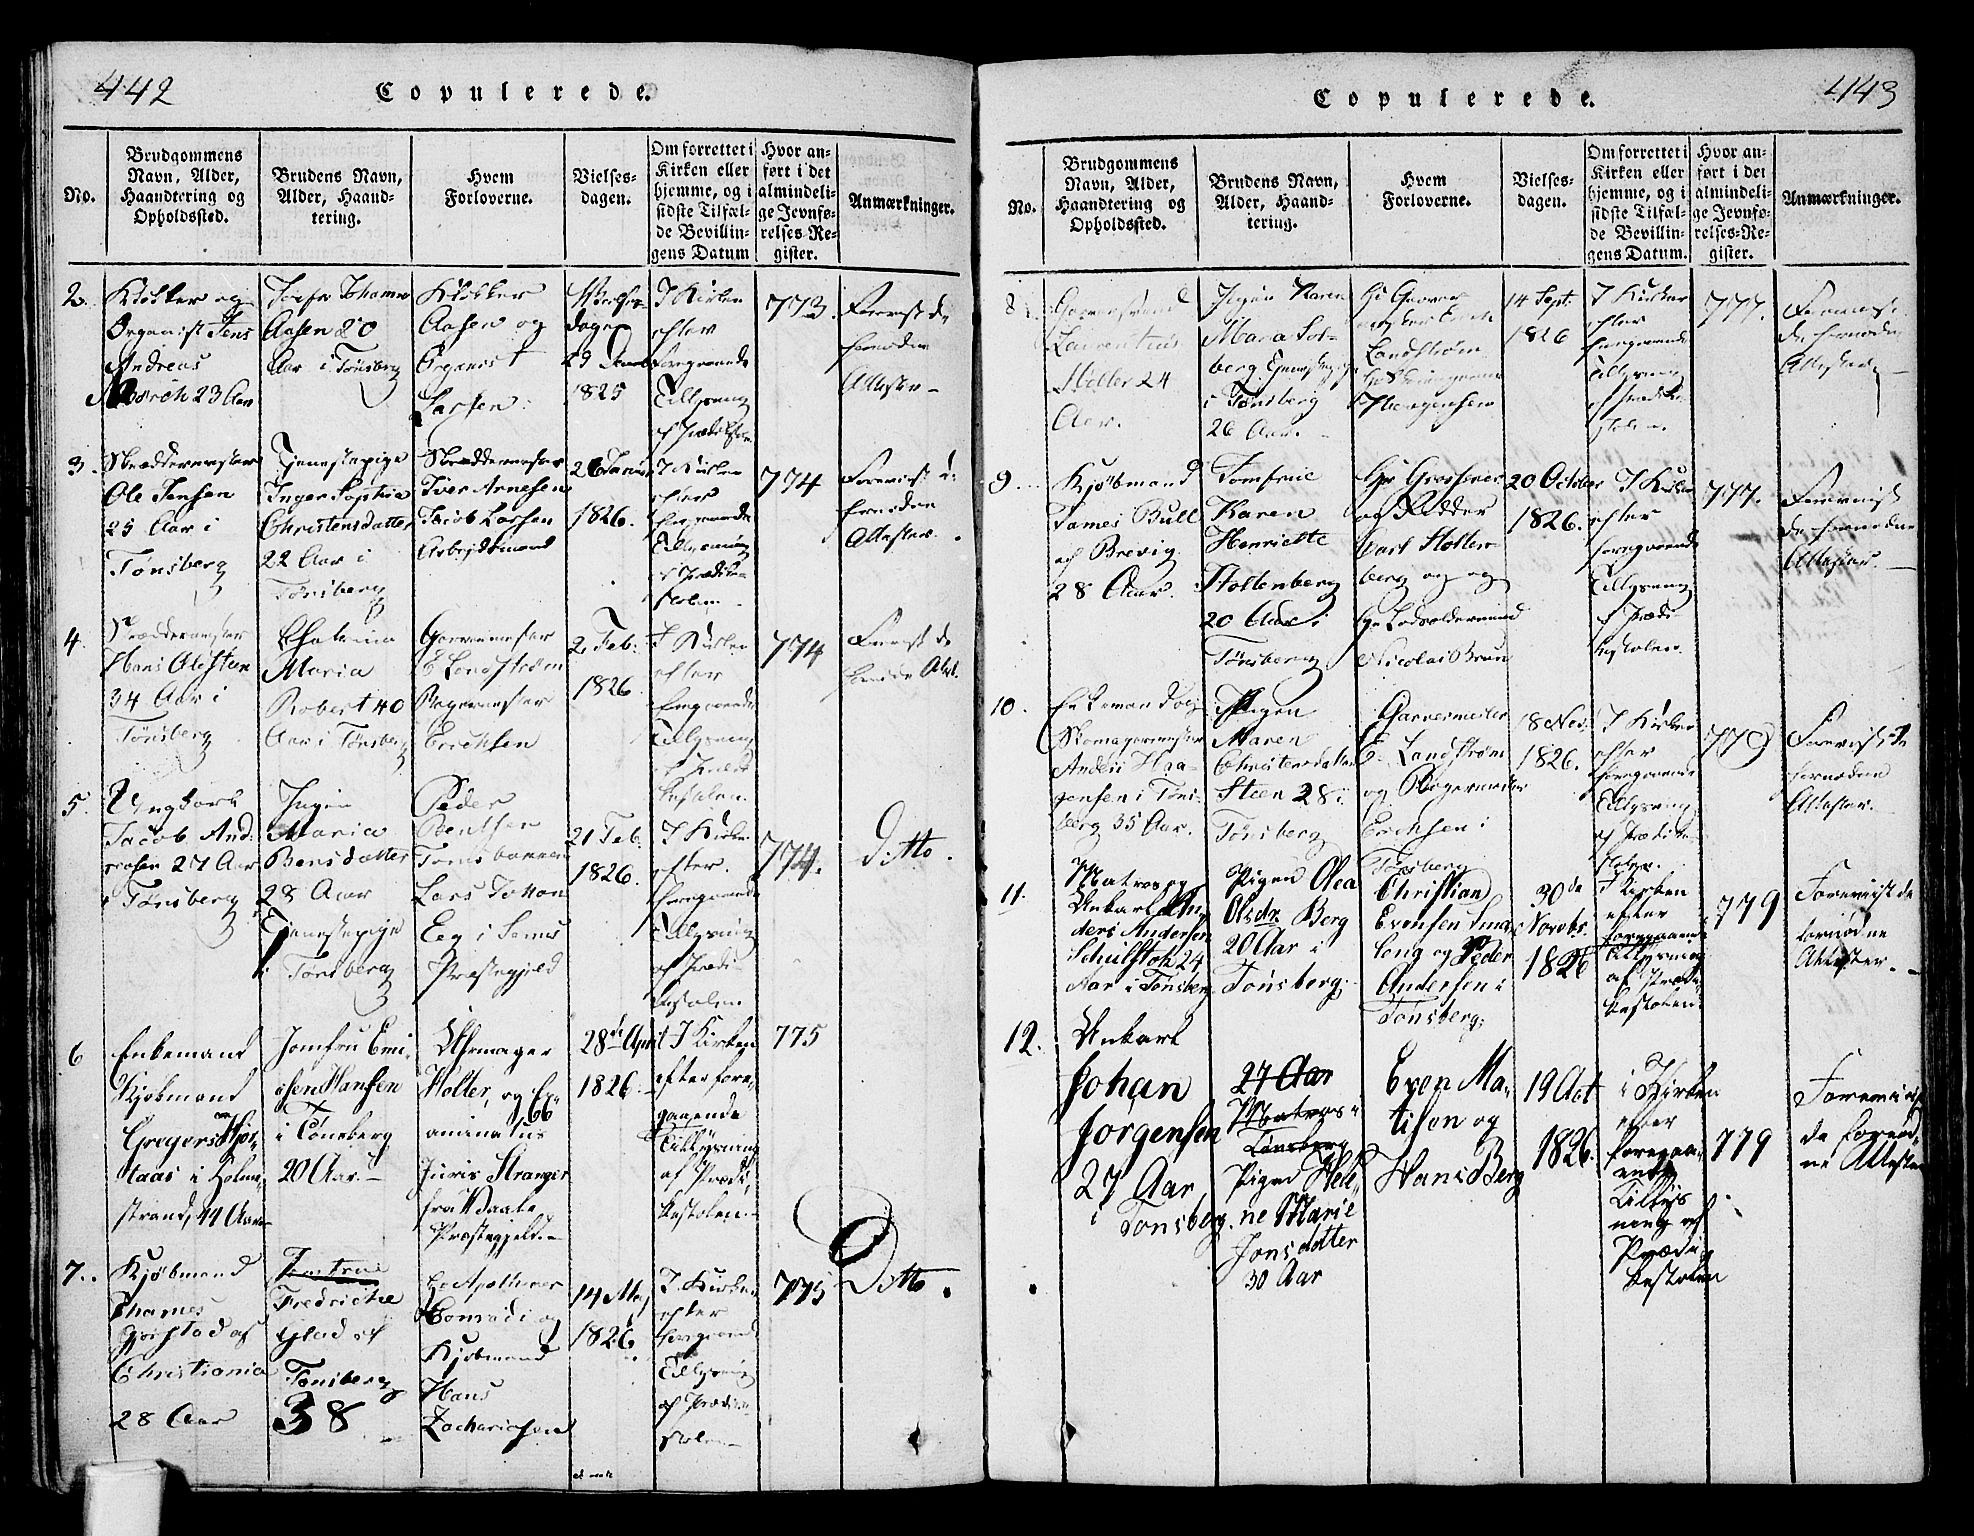 442
Copulerede.
No.
Brudgommens
Navn, Alder,
Haandtering og
Opholdssted.
Brudens Navn,
Alder, Haand-
tering.
Hvem
Forloverne.
Vielses-
dagen.
Om forrettet i
Kirken eller
hjemme, og i
sidste Tilfæl-
de Bevillin-
gens Datum
Hvor an-
ført i det
almindeli-
ge Jevnfø-
relses-Re-
gister.
Anmærkninger.
2.
Klokker og
Organist Jens
Andreas
Mørch 23 Aar
Johanne
Aasen 20
Aar i Tønsberg
Klokker
Aasen og
Organist
Larsen
29 Decemb
1825
I Kirken
efter
foregaaende
Tillysning
af Prædikestolen
773
Foreviist de
fornødne
Attester
3.
Skræddermester
Ole Jensen
25 Aar i
Tønsberg
Tjenestepige
Inger Sophia
Christensdatter
22 Aar i
Tønsberg
Skræddermester
Iver Arnesen
Jacob Larsen
Arbejdsmand
26 Januar
1826.
I Kirken
efter
foregaaende
Tillysning
af Prædike-
stolen
774
Foreviist de
fornødne
Attester.
4.
Skræddermester
Hans Olesteen
34 Aar i
Tønsberg
Cathrina
Maria
Robert 40
Aar i Tønsberg
Garvermester
E Landstrøm
Bagermester
Erichsen
2. Feb:
1826
I Kirken
efter
foregaaende
Tillysning
af Prædi-
kestolen
774
Foreviist de
fornødne Attest.
5.
Ungkarl
Jacob And-
reasen 27 Aar
i Tønsberg
Pigen
Maria
Bensdatter
28 Aar
Tjenestepige
i Tønsberg
Peder
Bentsen
Lars
Eeg i Sems
Præstegjeld
21 Feb.
1826.
I Kirken
efter
foregaaende
Tillysning
af Prædi-
kestolen
774.
Ditto.
6
Enkemand
Kjøbmand
Gregers
i Holm-
strand, 44 Aar
Jomfru Emi-
Hansen
i Tönsberg
20 Aar.
Uhrmager
Holter, og Ex-
aminatus
Juris Stranger
fra Waale
Præstegjeld.
28de April
1826.
I Kirken
efter fore-
gaaende
Tillysning
af Prædi-
kestolen.
775
7.
Kjøbmand
Thames
Gjerstad af
Christiania
28 Aar
Jomfrue
Fredriche
Glad af
Tønsberg
38
Hr Apotheker
Conradi og
Kjøbmand
Hans
Zachariasen
14 Maj
1826.
I Kirken
efter
foregaaende
Tillysning
af Prædike-
stolen
775
Ditto.
443
Copulerede.
No.
Brudgommens
Navn, Alder,
Haandtering og
Opholdssted.
Brudens Navn,
Alder, Haand-
tering.
Hvem
Forloverne.
Vielses-
dagen.
Om forrettet i
Kirken eller
hjemme, og i
sidste Tilfæl-
de Bevillin-
gens Datum.
Hvor an-
ført i det
almindeli-
ge Jevnfø-
relses-Re-
gister.
Anmærkninger.
8
Laurentius
Møller 24
Aar.
Pigen Karen
Maria Sol-
berg Tjenestepige
i Tønsberg
26 Aar.
Hr Garver-
mester Erich
Landstrøm
Jørgensen
14 Sept.
1826
I Kirken
efter
foregaaende
Tillysning
af Prædike-
stolen.
777.
Foreviist
de fornødne
Attester
9
Kjøbmand
James Bull
af Brevig
28 Aar.
Jomfrue
Karen
Henriette
Stoltenberg
20 Aar i
Tønsberg
Hr Grosserer
og Ridder
Carl Stolten-
berg og
Hr Lodsoldermand
Nicolai Brun
20 October
1826.
I Kirken
efter
foregaaende
Tillysning
af Prædi-
kestolen.
777.
Foreviist
de fornødne
Attester.
10.
Enkemand og
Skomagermester
Anders Haa-
gensen i Tøns-
berg 35 Aar.
Pigen
Maren
Christensdatter
Steen 28 i
Tønsberg
Garvermester
E. Landstrøm
og Bagermester
Erichsen i
Tønsberg
18 Nov:
1826.
I Kirken
efter
foregaaende
Tillysning
af Prædike-
stolen.
779
Foreviist de
fornødne
Attester.
11.
Matros og
Unkarl An-
ders Andersen
Schulstok 24
Aar i Tønsberg
Pigen Olea
Olsdr. Berg
20 Aar i
Tønsberg.
Christian
Evensen
og Peder
Andersen i
Tønsberg;
30de
Novebr.
1826
I Kirken
efter
foregaaende
Tillysning
af Prædi-
kestolen.
779
Foreviist de
fornødne
Attester.
12.
Unkarl
Johan
Jörgensen
27 Aar
i Tönsberg.
27 Aar
Matros i
Tønsberg
Pigen Hele-
ne Marie
Jonsdatter
30 Aar
Even Ma-
tisen og
Hans Berg
19 Oct
1826.
i Kirken
efter
foregaa-
ende
Tillys
ning af
Prædi-
kestolen
779
Foreviist
de fornød-
ne Attester